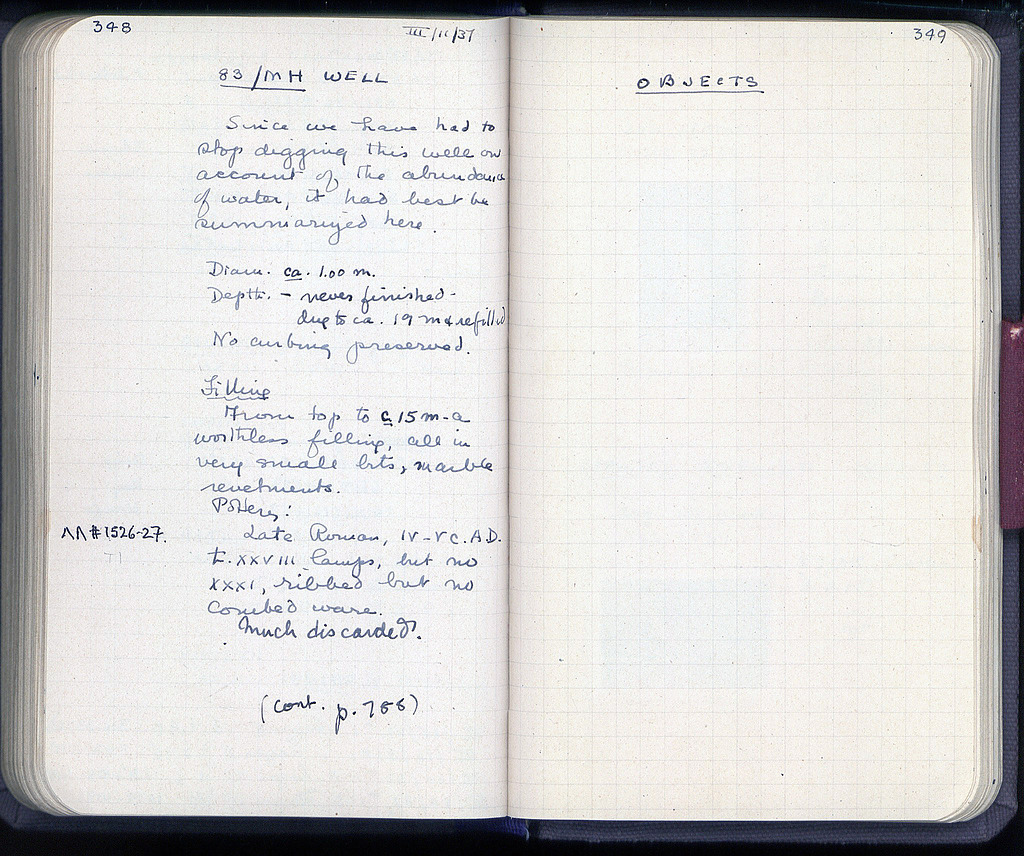 348
III/11/37
83/MH WELL
Since we have had to
stop digging this well on
account of the abundance
of water, it had best be
summarized here.
Diam. ca. 1.00 m.
Depth. - never finished -
dug to ca. 19 m & refilled
No curbing preserved.
Filling
From top to c 15 m - a
worthless filling, all in
very small bits, marble
revetments.
Pottery:
ΛΛ #1526-27.
Late Roman, IV-V c. A.D.
t. XXVIII lamps, but no
XXXI, ribbed but no
Combed ware.
Much discarded.
(cont. p. )
349
OBJECTS